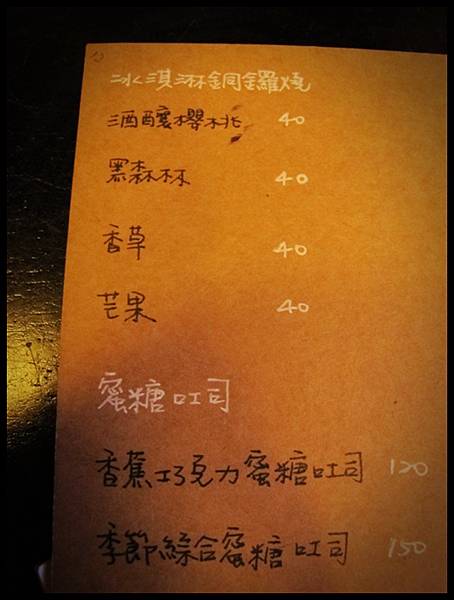 冰淇淋銅鑼燒
酒釀櫻桃 40
黑森林 40
香草 40
芒果 40
蜜糖吐司
香蕉巧克力蜜糖吐司 120
季節綜合蜜糖吐司 150